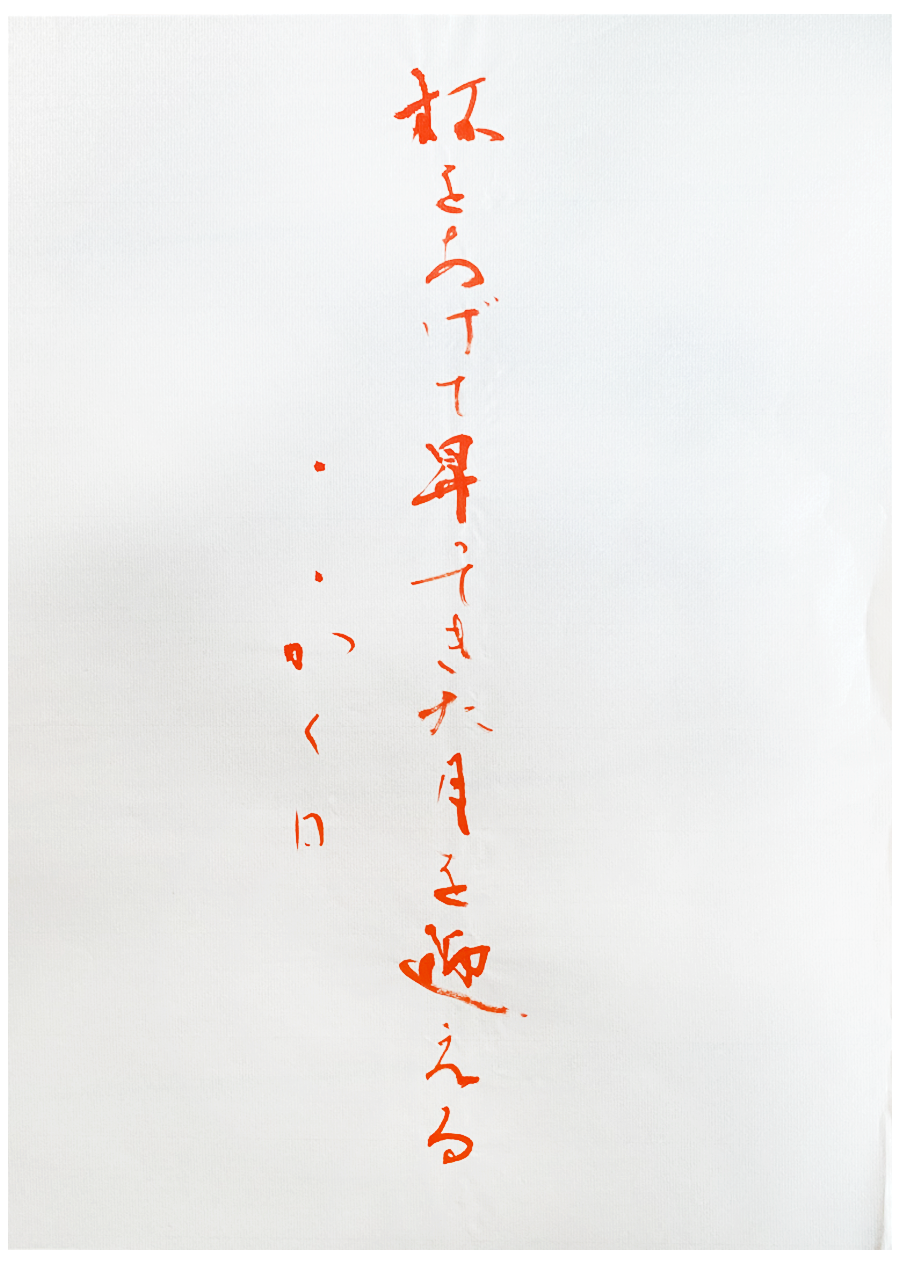 杯をあげて昇ってきた月を迎える
・・かく日